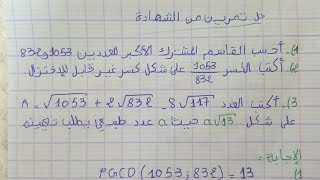 حل تمرين من الشهادة
1. أحسب القاسم المشترك الأكبر للعددين 1053 و 832
2. أكتب الكسر 1053/832 على شكل كسر غير قابل للإختزال.
3. أكتب العدد A = √1053 + 2√832 - 8√117
على شكل a√13 حيث a عدد طبيعي يطلب تعيينه
الإجابة =
1. PGCD(1053; 832) = 13